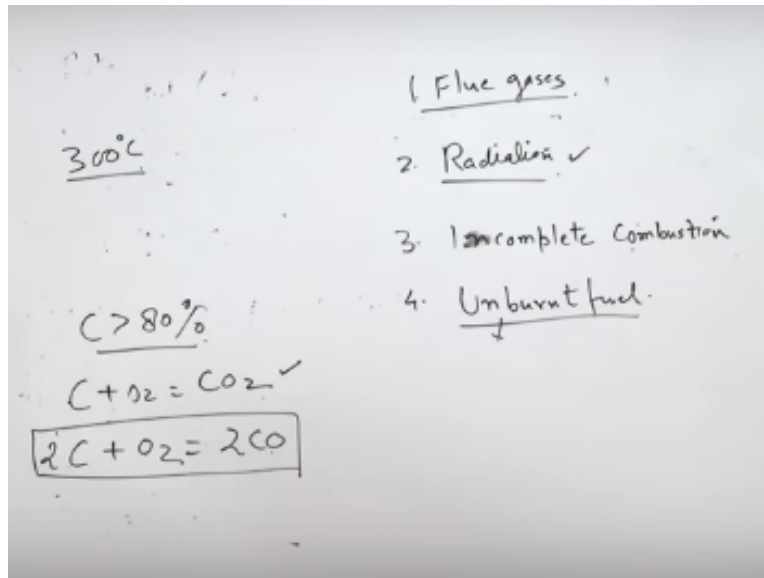 300°C
C > 80%
C + O2 = CO2 ✓
2C + O2 = 2CO
1 Flue gases
2. Radiation ✓
3. Incomplete Combustion
4. Unburnt fuel.